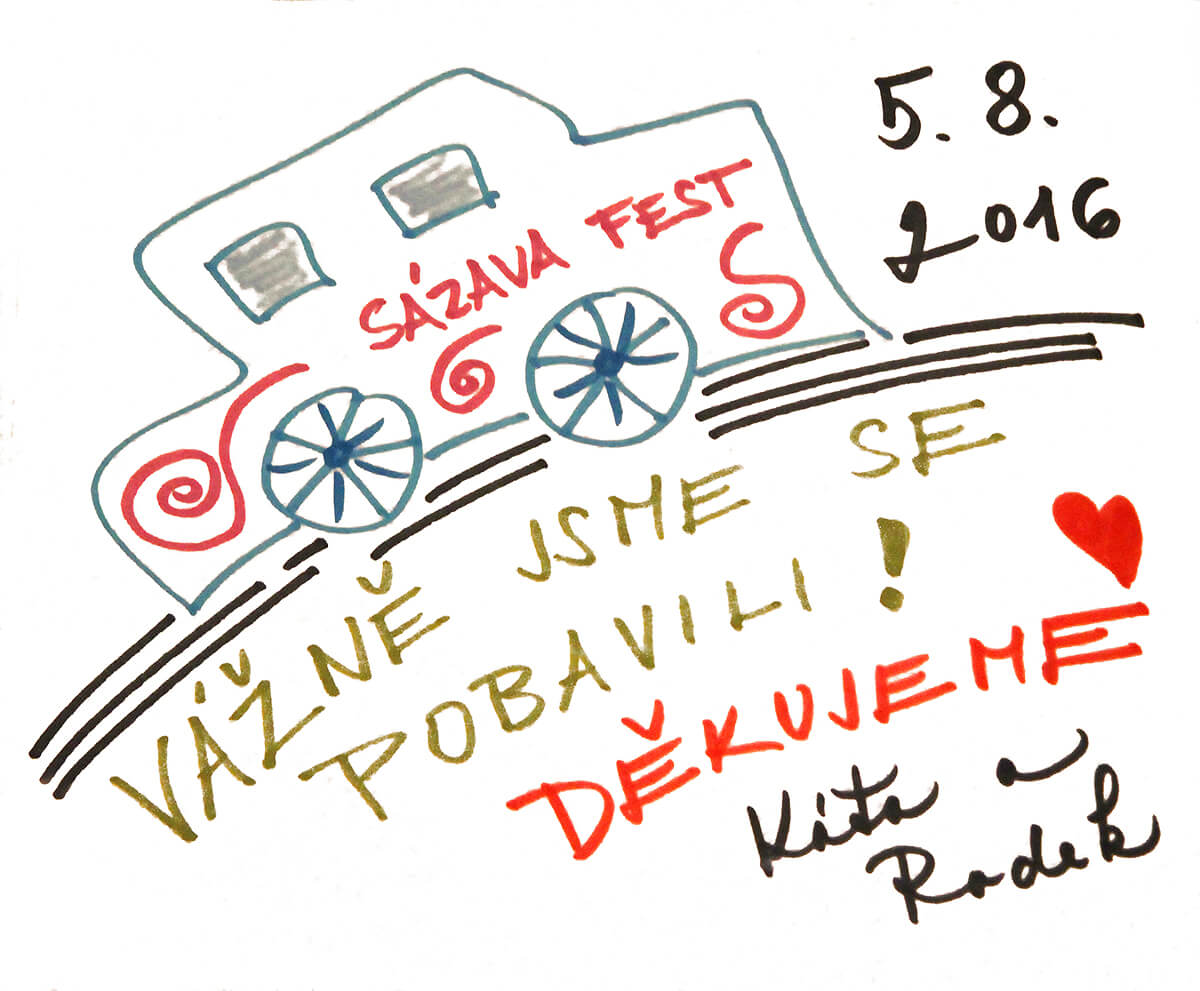 5. 8.
2016
SÁZAVA FEST
VÁŽNĚ JSME SE
POBAVILI!
DĚKUJEME
Káťa a
Radek